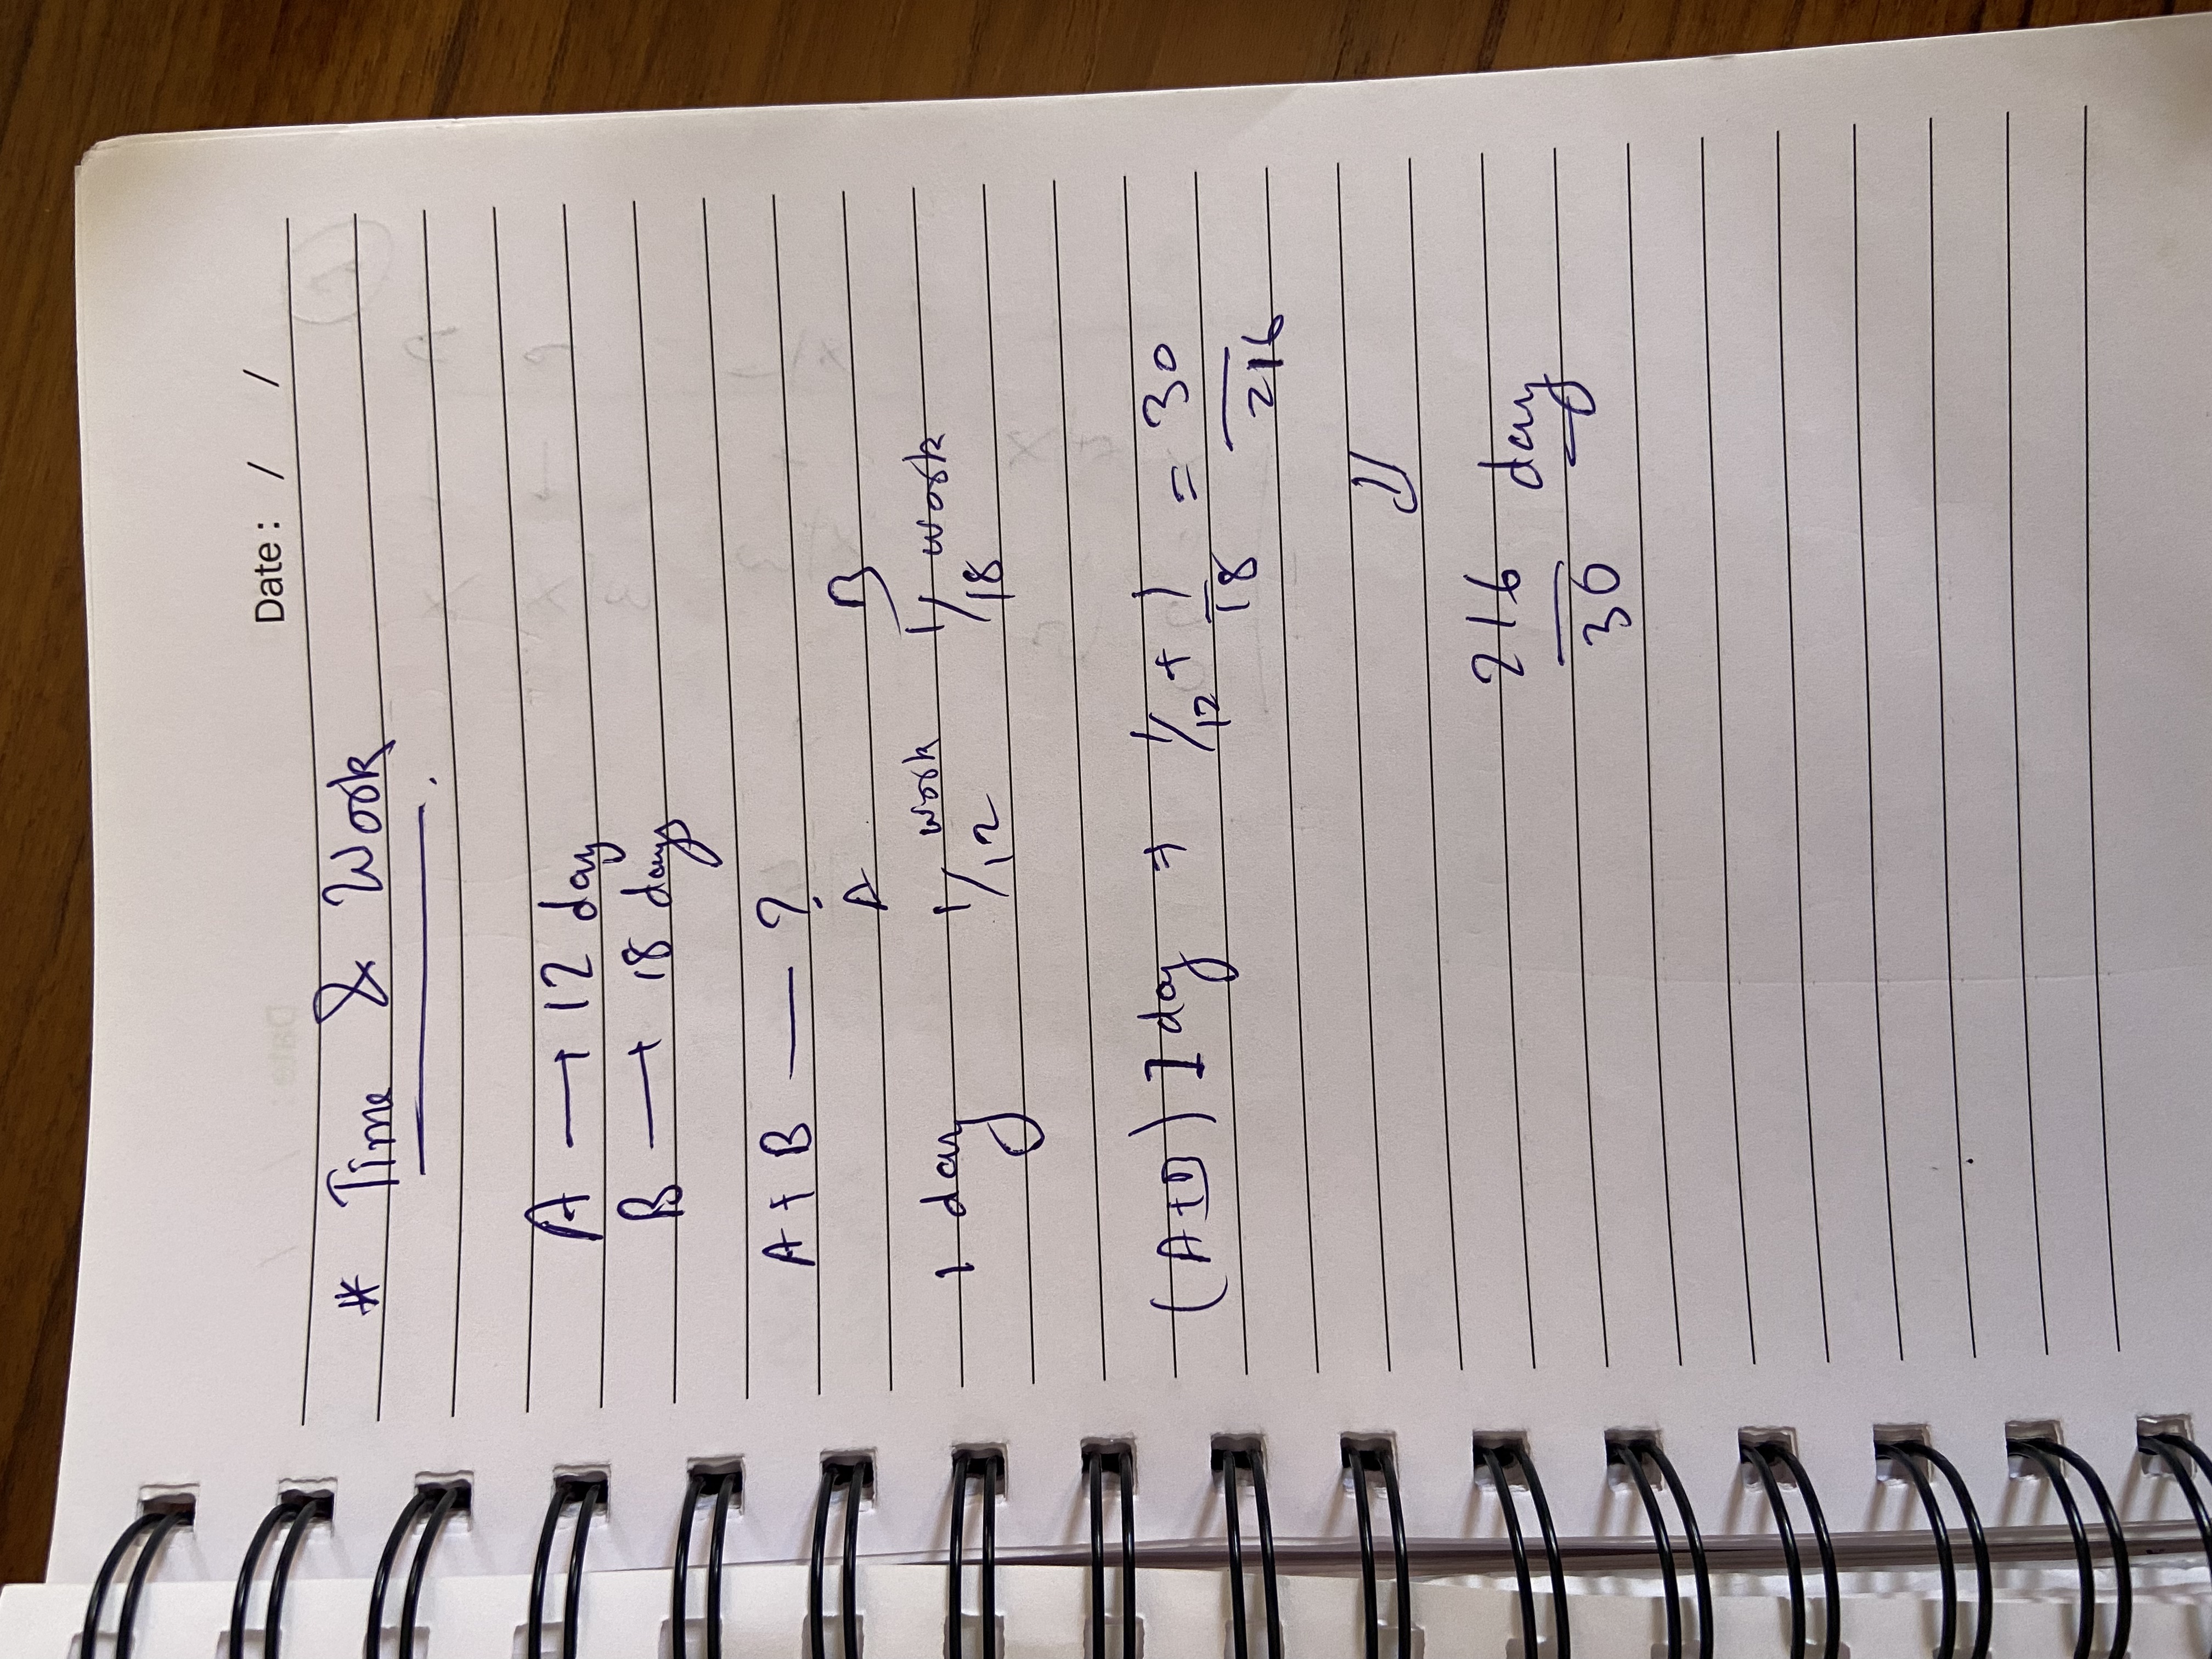 Date : / /
* Time & Work
A → 12 day
B → 18 days
A + B — ?
A B
1 day 1/12 work 1/18 work
(A+B) 1 day → 1/12 + 1/18 = 30/216
⇓
216/30 day